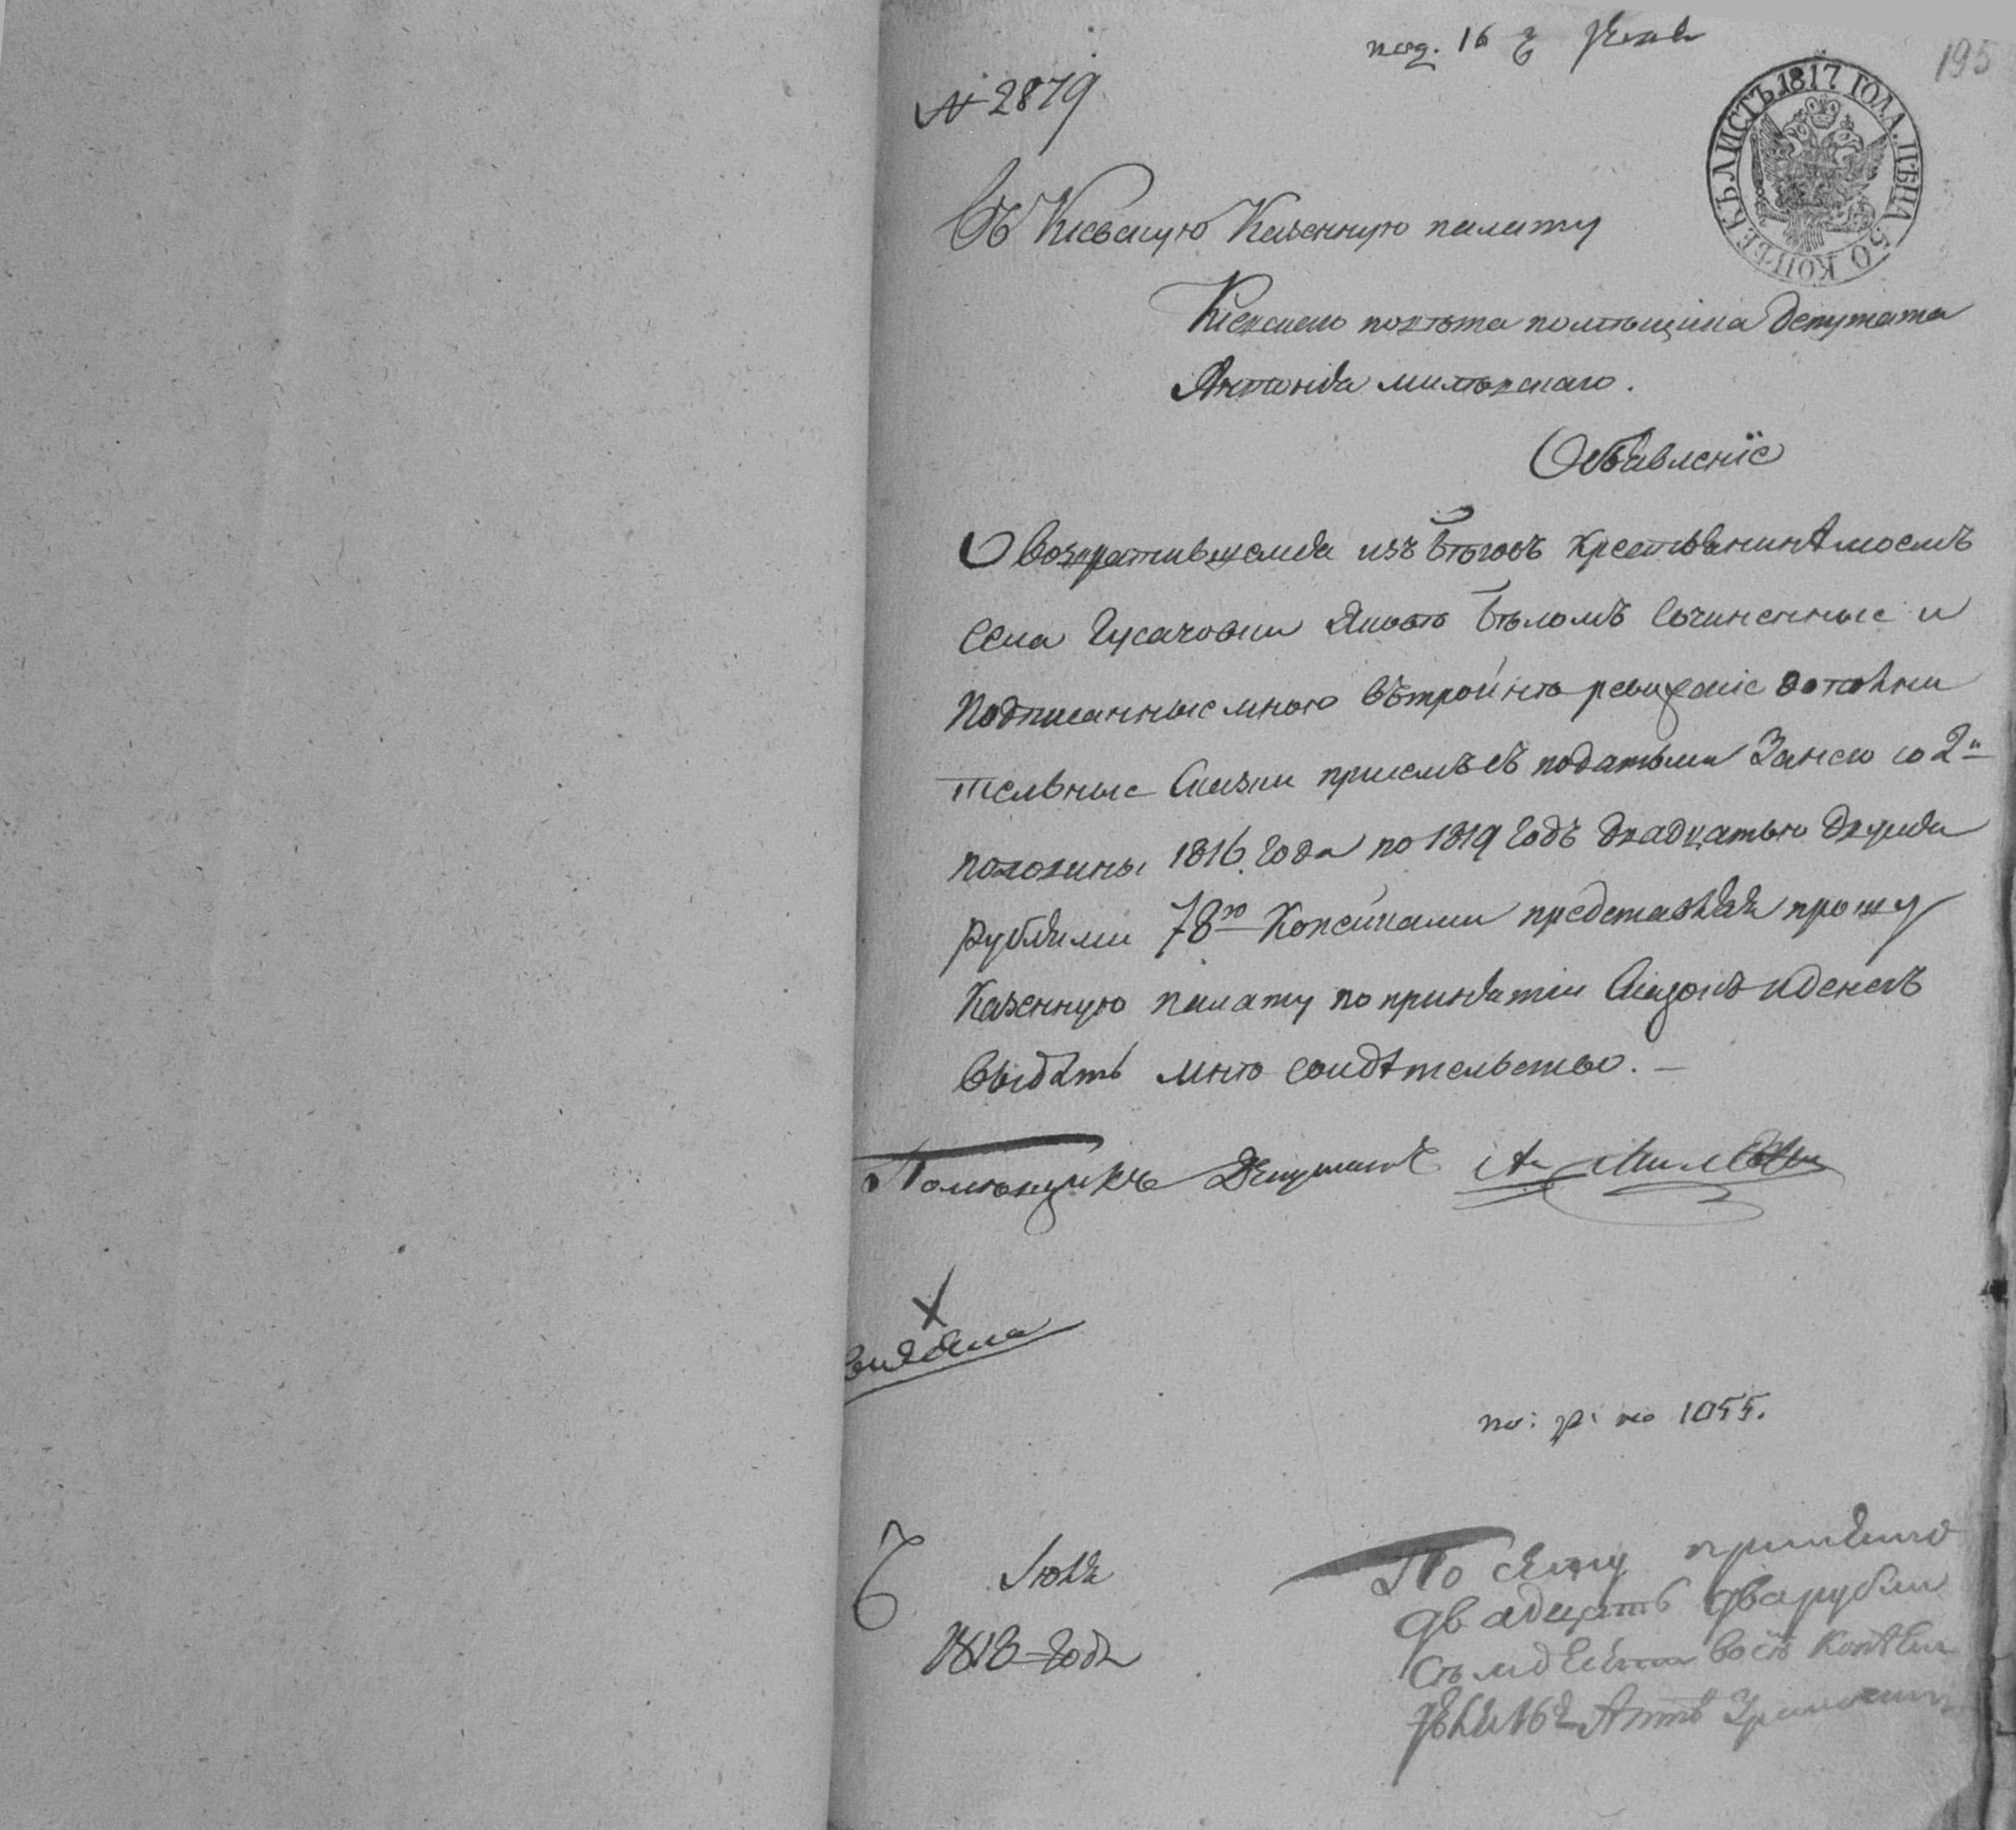 под. 16 г Июля
195
№ 2879
КЪ ЛИСТЪ 1817 ГОДА. ЦѢНА 50 КОПѢЕ
Въ Кіевскую Казенную палату
Кіевского повѣта помѣщика депутата
Антонія Милѣвскаго.
Объявленіе
О возвратившемся изъ бѣговъ крестьянинѣ моемъ
села Гусачовки Яковѣ Бѣломъ сочиненные и
Подписанные мною въ тройнѣ ревизскіе дополни
тельные Сказки при семъ съ податьми За него со 2й
половины 1816 года по 1819 годъ двадцатью двумя
рублями 78ю Копейками представляя прошу
Казенную палату по принятіи Сказокъ и денегъ
выдать мнѣ свидѣтельство. —
Помѣщикъ Депутатъ А.
по: р: но 1055.
6 Іюля
1818 Года
По сему принято
двадцать два рубли
семдесятъ восѣ копѣек
Июля 16 г